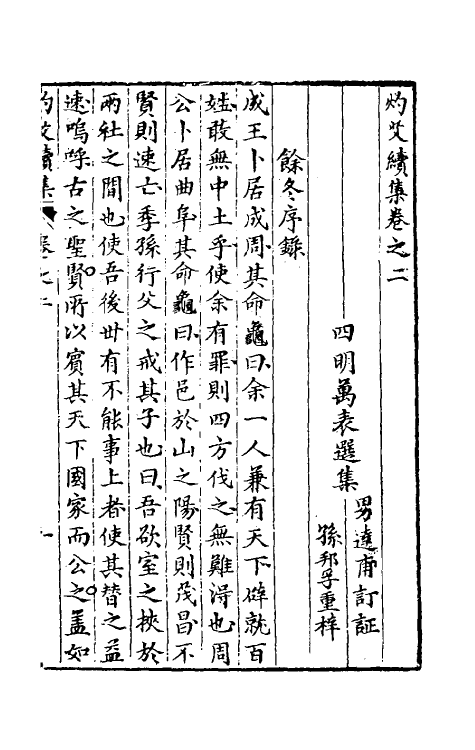 灼艾續集卷之二
四明萬表選集
男達甫訂証
孫邦孚重梓
餘冬序録
成王卜居成周其命龜曰余一人兼有天下辟就百
姓敢無中土乎使余有罪則四方伐之無難得也周
公卜居曲阜其命龜曰作邑於山之陽賢則茂昌不
賢則速亡季孫行父之戒其子也曰吾欲室之挾於
兩社之間也使吾後世有不能事上者使其替之益
速嗚呼古之聖賢所以賓其天下國家而公之盖如
灼艾續集 卷之二 一